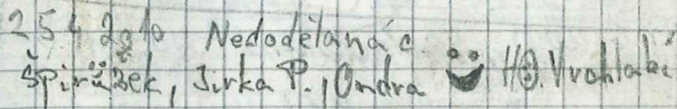 25.4.2010 Nedodělaná č.
Špirůzek, Jirka P., Ondra HO.Vrchlabí